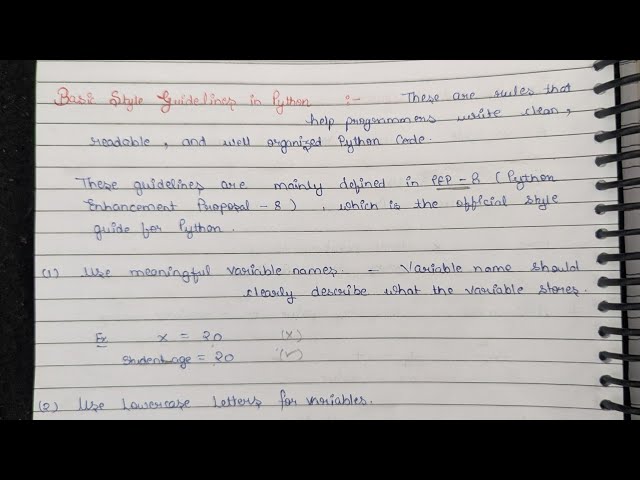 Basic Style Guidelines in Python :- These are rules that
help programmers write clean,
readable, and well organized Python Code.
These guidelines are mainly defined in PEP-8 (Python
Enhancement Proposal-8), which is the official style
guide for Python.
(1) Use meaningful variable names. - Variable name should
clearly describe what the variable stores.
Ex x = 20 (x)
Studentage = 20 (✓)
(2) Use Lowercase Letters for variables.